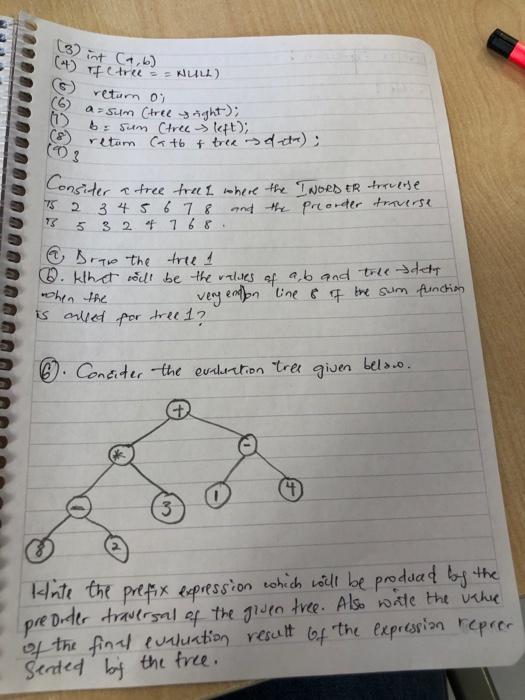 (3) int (a,b)
(4) if (tree == NULL)
(5) return 0;
(6) a = sum (tree → right);
(7) b = sum (tree → left);
(8) return (a+b + tree → data);
(9) }
Consider a tree tree1 where the INORDER traverse
is 2 3 4 5 6 7 8 and the preorder traverse
is 5 3 2 4 7 6 8.
(a) Draw the tree 1
(b). What will be the values of a,b and tree → data
when the very end on line 8 if the sum function
is called for tree 1?
(6). Consider the evaluation tree given below.
+
* -
- 3 1 4
8 2
Write the prefix expression which will be produad by the
preorder traversal of the given tree. Also write the value
of the final evaluation result of the expression repre
sented by the tree.